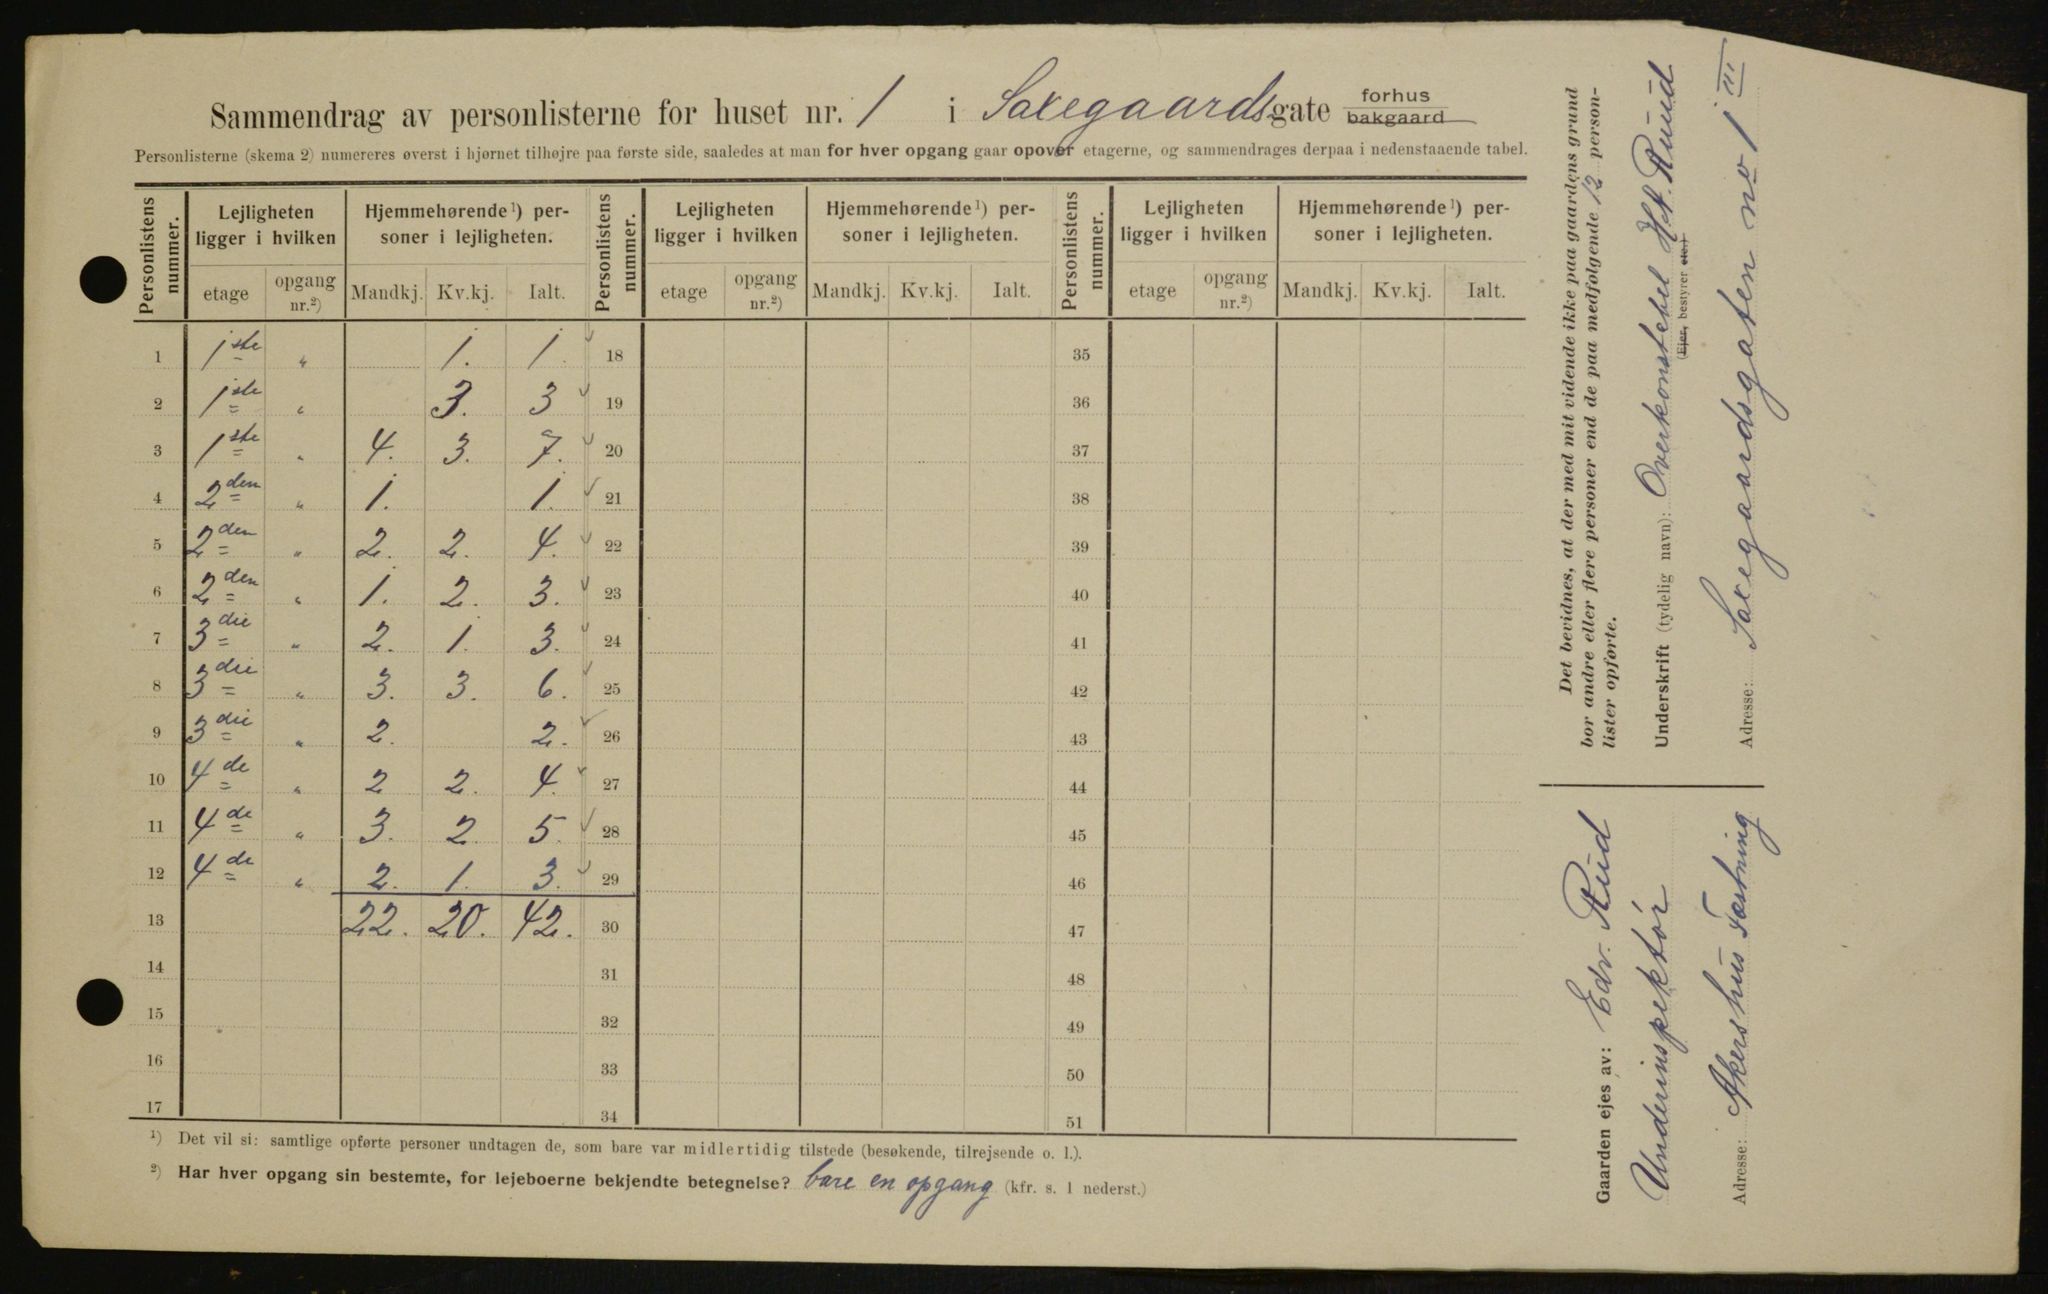 Sammendrag av personlisterne for huset nr. 1 i Saxegaardsgate forhus bakgaard
Personlisterne (skema 2) numereres øverst i hjørnet tilhøjre paa første side, saaledes at man for hver opgang gaar opover etagerne, og sammendrages derpaa i nedenstaaende tabel.
Personlistens nummer. Lejligheten ligger i hvilken Hjemmehørende ¹) personer i lejligheten. Personlistens nummer. Lejligheten ligger i hvilken Hjemmehørende ¹) personer i lejligheten. Personlistens nummer. Lejligheten ligger i hvilken Hjemmehørende ¹) personer i lejligheten.
etage opgang nr.²) Mandkj. Kv.kj. Ialt. etage opgang nr.²) Mandkj. Kv.kj. Ialt. etage opgang nr.²) Mandkj. Kv.kj. Ialt.
1 1ste „ 1. 1. 18 35
2 1ste „ 3. 3 19 36
3 1ste „ 4. 3. 7. 20 37
4 2den „ 1. 1. 21 38
5 2den „ 2. 2. 4. 22 39
6 2den „ 1. 2. 3. 23 40
7 3die „ 2. 1. 3. 24 41
8 3die „ 3. 3. 6. 25 42
9 3die „ 2. 2. 26 43
10 4de „ 2 2. 4. 27 44
11 4de „ 3. 2. 5. 28 45
12 4de „ 2. 1. 3. 29 46
13 22. 20. 42. 30 47
14 31 48
15 32 49
16 33 50
17 34 51
¹) Det vil si: samtlige opførte personer undtagen de, som bare var midlertidig tilstede (besøkende, tilrejsende o. l.).
²) Har hver opgang sin bestemte, for lejeboerne bekjendte betegnelse? bare en opgang (kfr. s. 1 nederst.)
Det bevidnes, at der med mit vidende ikke paa gaardens grund
bor andre eller flere personer end de paa medfølgende 12 person-
lister opførte.
Underskrift (tydelig navn): Overkonstabel Hst. Ruud
(Ejer, bestyrer etc.)
Adresse: Saxegaardsgaten no 1 III
Gaarden ejes av: Edv. Rud
Underinspektør
Adresse: Akershus Fæstning